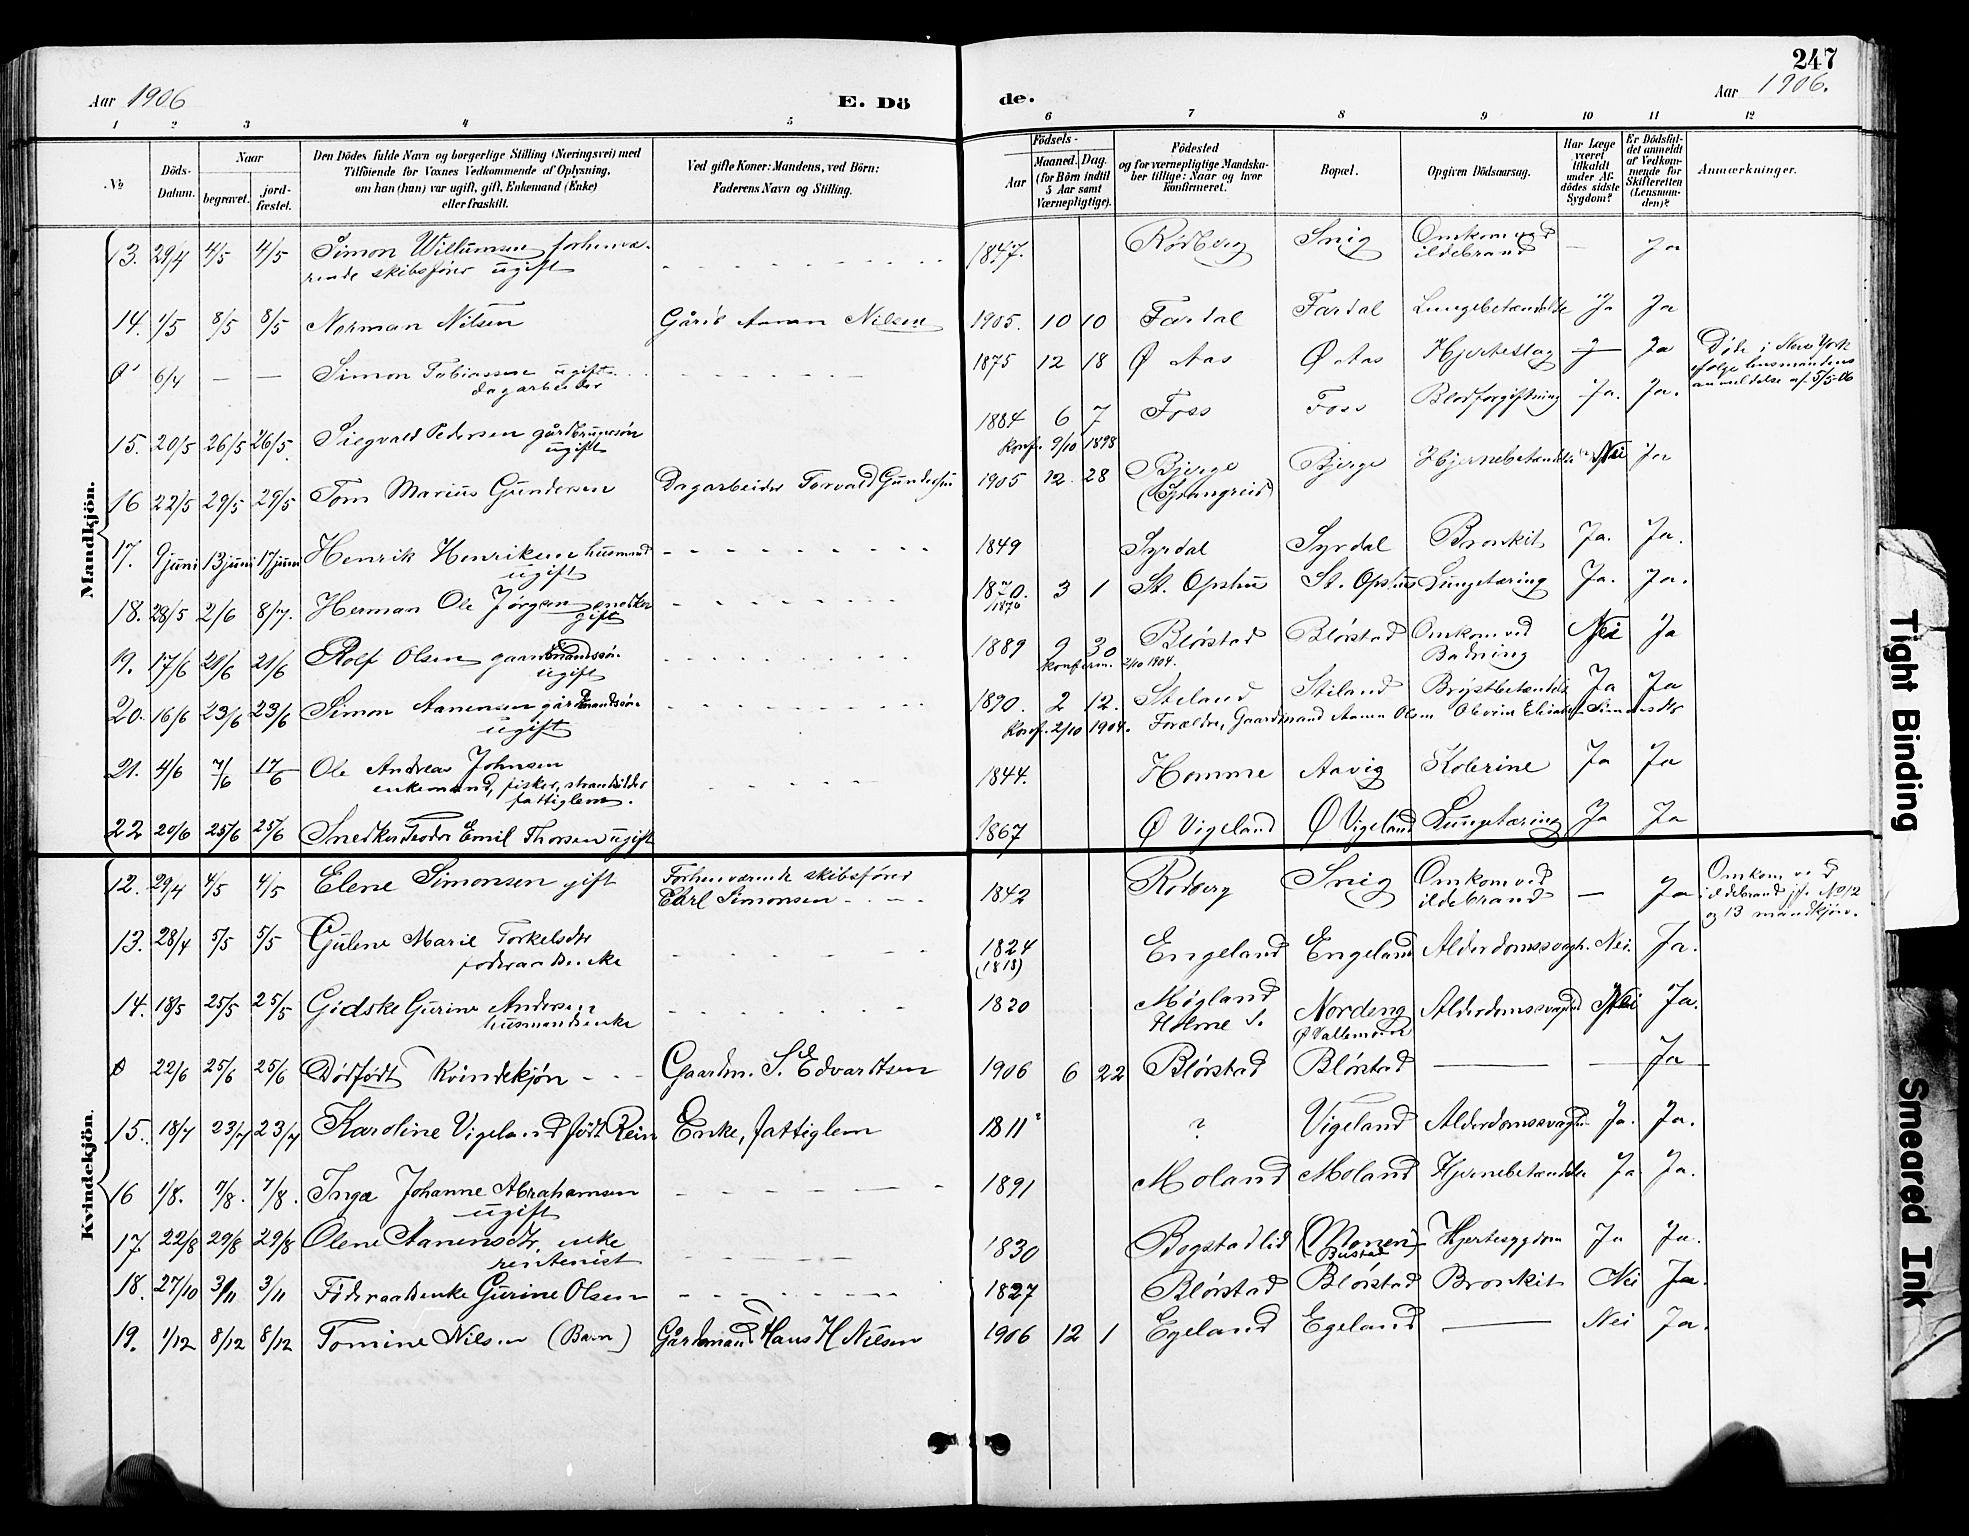 247
Aar 1906
E. Dö
de.
Aar 1906.
1 2 3 4 5 6 7 8 9 10 11 12
No
Döds-Datum.
Naar
begravet.
jord-fæstet.
Den Dödes fulde Navn og borgerlige Stilling (Næringsvei) med
Tilföiende for Voxnes Vedkommende af Oplysning,
om han (hun) var ugift, gift, Enkemand (Enke)
eller fraskilt.
Ved gifte Koner: Mandens, ved Börn:
Faderens Navn og Stilling.
Födsels-
Aar
Maaned. Dag.
(for Börn indtil
5 Aar samt
Værnepligtige).
Födested
og for værnepligtige Mandska-
ber tillige: Naar og hvor
konfirmeret.
Bopæl.
Opgiven Dödsaarsag.
Har Læge
været
tilkaldt
under Af-
dödes sidste
Sygdom?
Er Dödsfal-
det anmeldt
af Vedkom-
mende for
Skifteretten
(Lensman-
den)?
Anmærkninger.
Mandkjön.
13. 29/4 4/5 4/5 Simon Willumsen forhenvæ-
rende skibsfører ugift
1847. Rødberg Snig Omkom ved
ildebrand — Ja
14. 1/5 8/5 8/5 Norman Nilsen Gårdb Aanen Nilsen 1905. 10 10 Fardal Fardal Lungebetændelse Ja Ja
6/4 — — Simon Tobiassen ugift
dagarbeider
1875 12 18 Ø Aas Ø Aas Hjerteslag Ja
Døde i New York
ifølge lensmandens
anmeldelse af 5/5-06
15. 20/5 26/5 26/5. Siegvald Pedersen gårdbrugersøn
ugift
1884 6 7 Foss Foss Blodforgiftning Ja. Ja.
Konf. 9/10 1898
16 22/5 29/5 29/5 Tom Marius Gundersen Dagarbeider Torvald Gundersen 1905 12. 28 Bjerge Bjerge Hjernebetændelse Nei Ja
17. 9 juni 13 juni 17 juni Henrik Henriksen husmand
ugift
1849 Syrdal Syrdal Bronkit Ja. Ja.
18. 28/5 2/6 8/7. Herman Ole Jørgensen snedker
gift
1870. 3 1 St. Opshus St. Opshus Lungetæring Ja. Ja.
1876
19. 17/6 21/6 21/6 Rolf Olsen gaardmandssøn
ugift
1889 9 30 Blørstad Blørstad Omkom ved
Badning Nei Ja
konferm. 2/10 1904.
20. 16/6 23/6 23/6 Simon Aanensen gårdmandssøn
ugift
1890. 2 12. Steland Stiland Brystbetændelse Ja Ja
Konf. 2/10 1904. Forældre, Gaardmand Aanen Olsen Simonsdtr
21. 4/6 7/6 17/6 Ole Andreas Johnsen
enkemand, fisker, strandsidder
fattiglem.
1844. Homme Aavig Kolerine Ja Ja
22 20/6 25/6 25/6 Snedker Teodor Emil Thorsen ugift 1867 Ø Vigeland Ø Vigeland Lungetæring Ja Ja
Kvindekjön.
12. 29/4 4/5 4/5 Elene Simonsen gift Forhenværende skibsfører
Carl Simonsen
1842 Rødberg Snig Omkom ved
ildebrand — Ja
Omkom ved
ildebrand jfr. No 12
og 13 mandkjøn.
13. 28/4 5/5 5/5 Gulene Marie Torkelsdtr
føderaadsenke
1824
(1818)
Engeland Engeland Alderdomssvagh. Nei. Ja.
14. 18/5 25/5 25/5 Gidske Gurine Andersen
husmandsenke
1820 Møgland
Holme S.
Nordeng
Ø Vallemoen
Alderdomssvaghed Nei Ja.
22/6 25/6 25/6 Dødfødt Kvindekjøn Gaardm. S. Edvardsen 1906 6 22 Blørstad Blørstad — — Ja
15. 18/7 23/7 23/7 Karoline Vigeland født Rein Enke, fattiglem 1811? ? Vigeland Alderdomssvaghed Ja. Ja.
16 1/8. 7/8. 7/8. Inga Johanne Abrahamsen
ugift
1891 Moland Moland Hjernebetændelse Ja Ja.
17 22/8 29/8 29/8 Olene Aanensdtr. enke
rentenist
1830 Bogstadlid (Monen)
Bustad
Hjertesygdom Ja Ja.
18. 27/10 3/11 3/11 Føderaadsenke Gurine Olsen 1827 Blørstad Blørstad Bronkit Nei Ja.
19. 1/12 8/12 8/12 Tomine Nilsen (Barn) Gårdmand Hans H Nilsen 1906 12 1 Egeland Egeland — Nei Ja.
Tight Binding
Smeared Ink